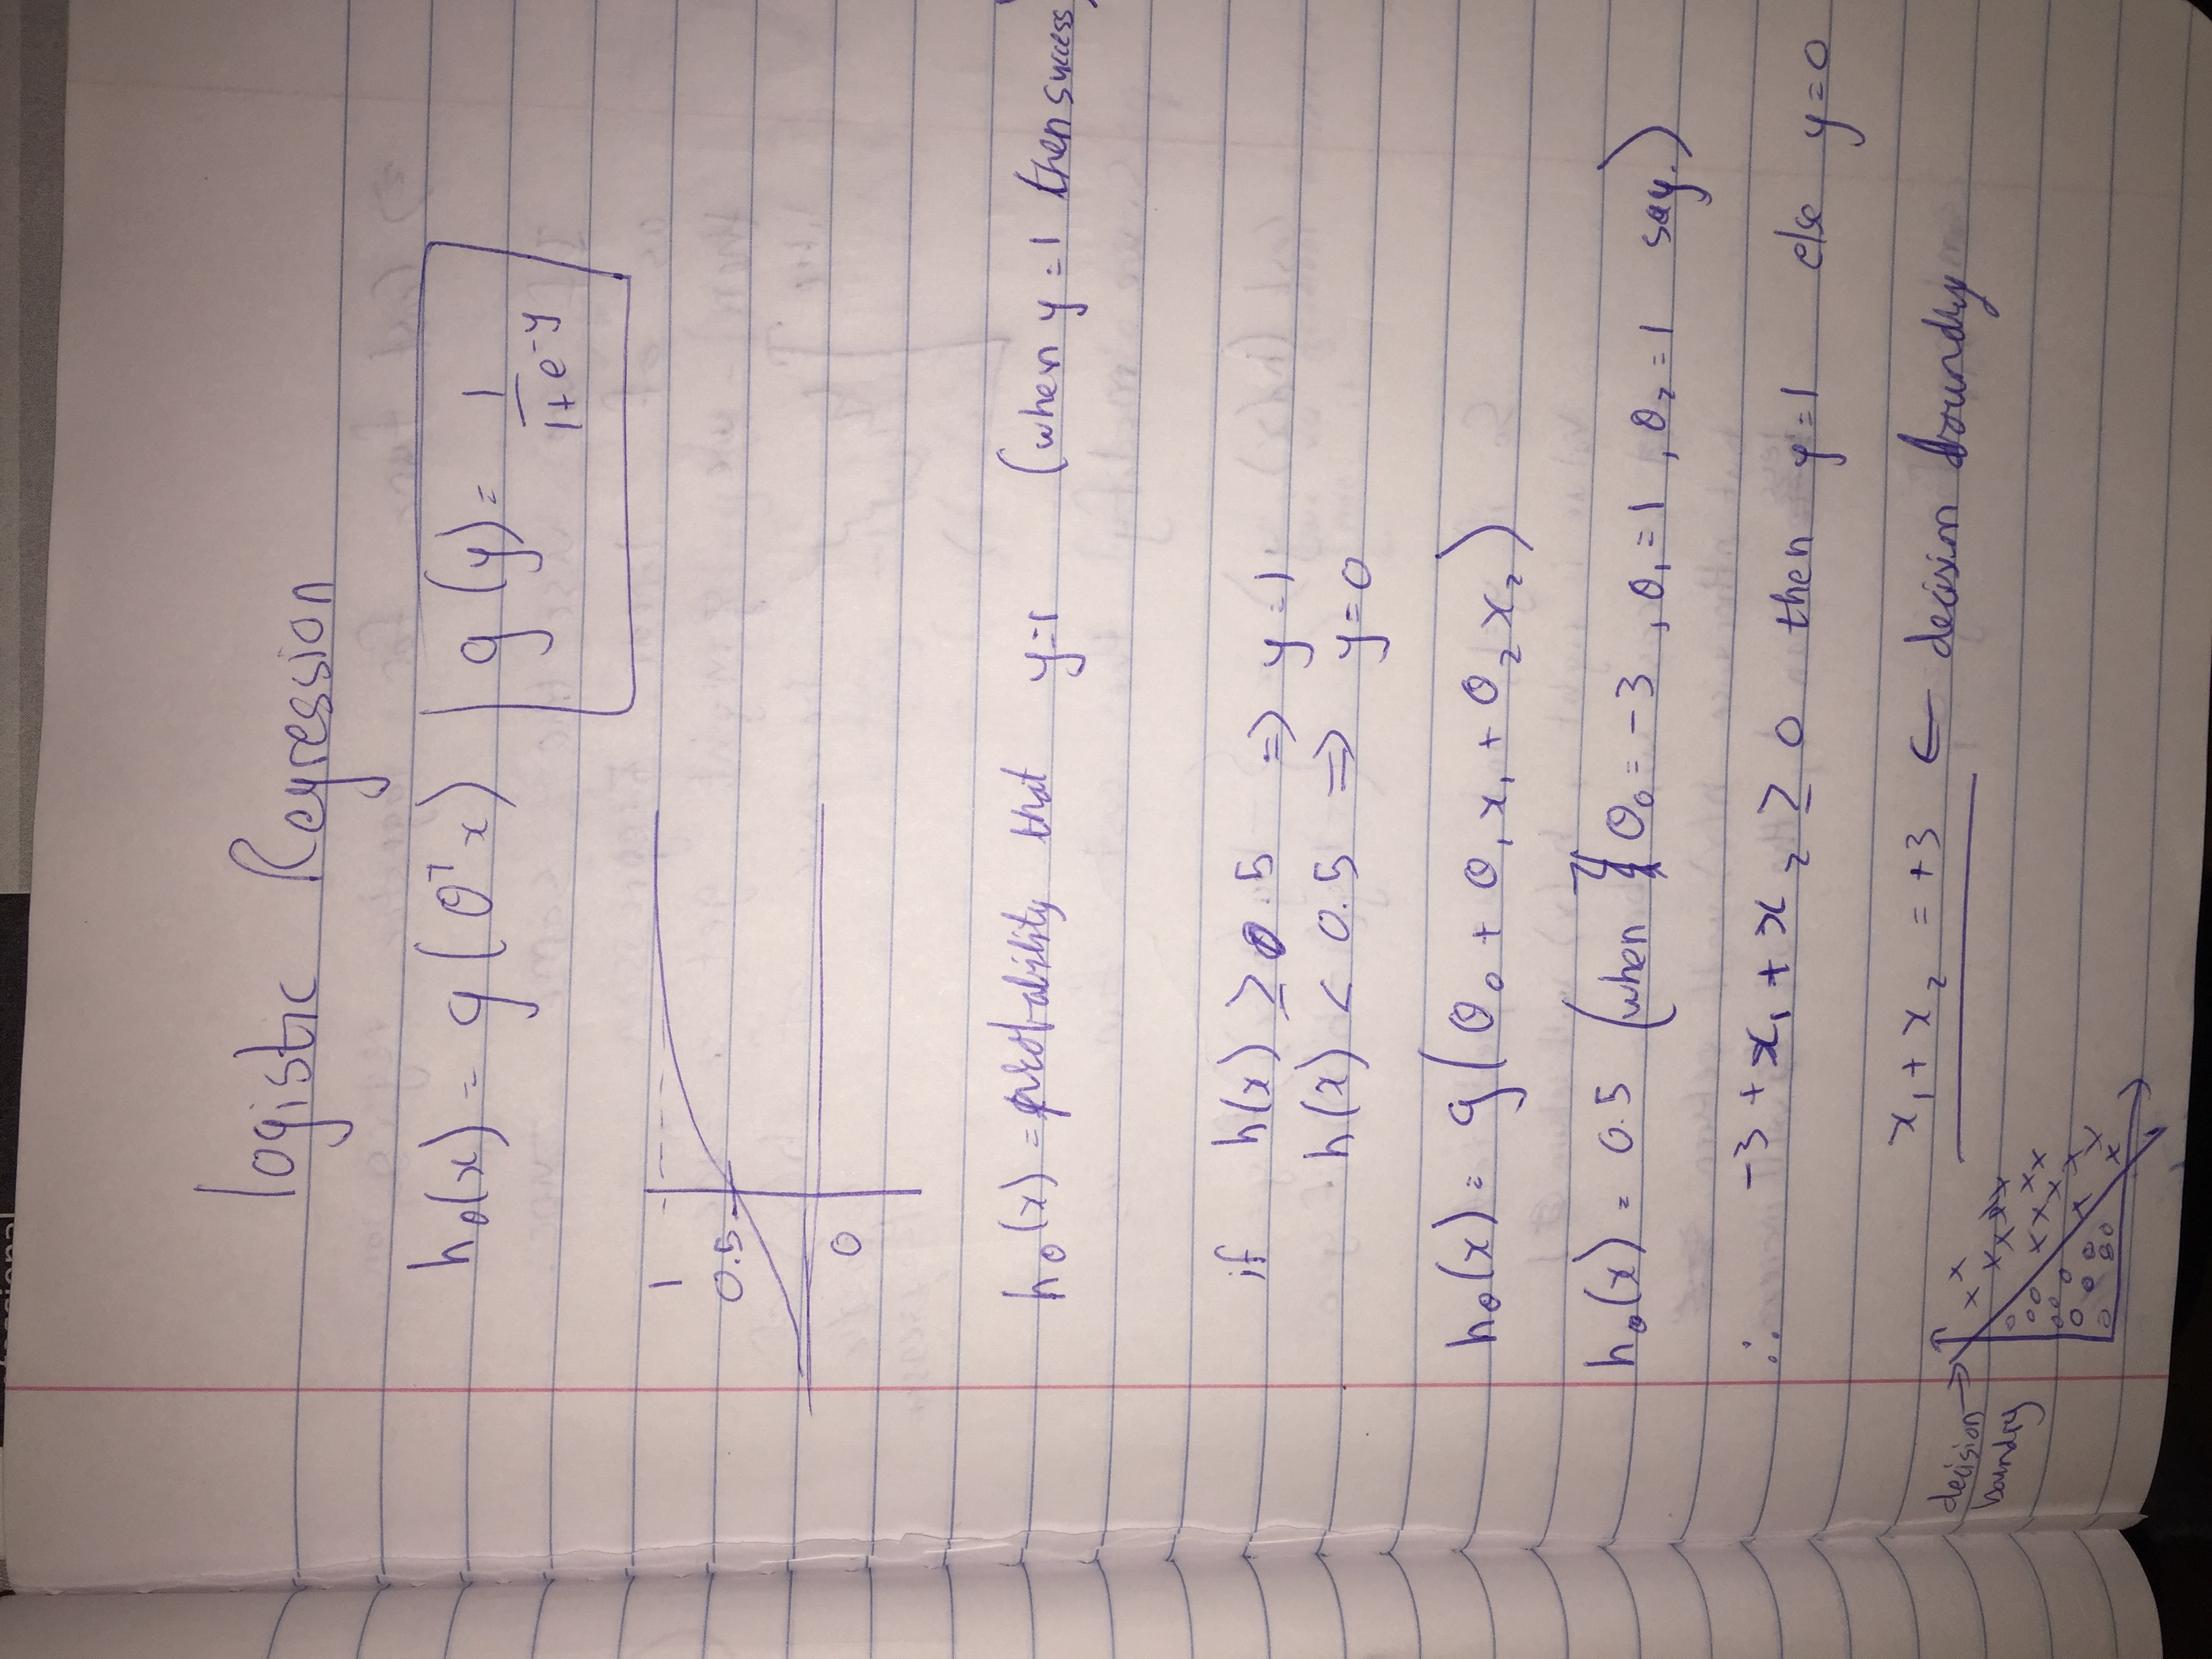 logistic Regression
hθ(x) = g(θᵀx) g(y) = 1/(1+e^-y)
1
0.5
0
hθ(x) = probability that y=1 (when y=1 then success)
if h(x) ≥ 0.5 ⇒ y=1
h(x) < 0.5 ⇒ y=0
hθ(x) = g(θ₀ + θ₁x₁ + θ₂x₂)
hθ(x) = 0.5 (when θ₀ = -3, θ₁=1, θ₂=1 say.)
∴ -3 + x₁ + x₂ ≥ 0 then y=1 else y=0
x₁ + x₂ = +3 ← decision boundry
decision →
boundry